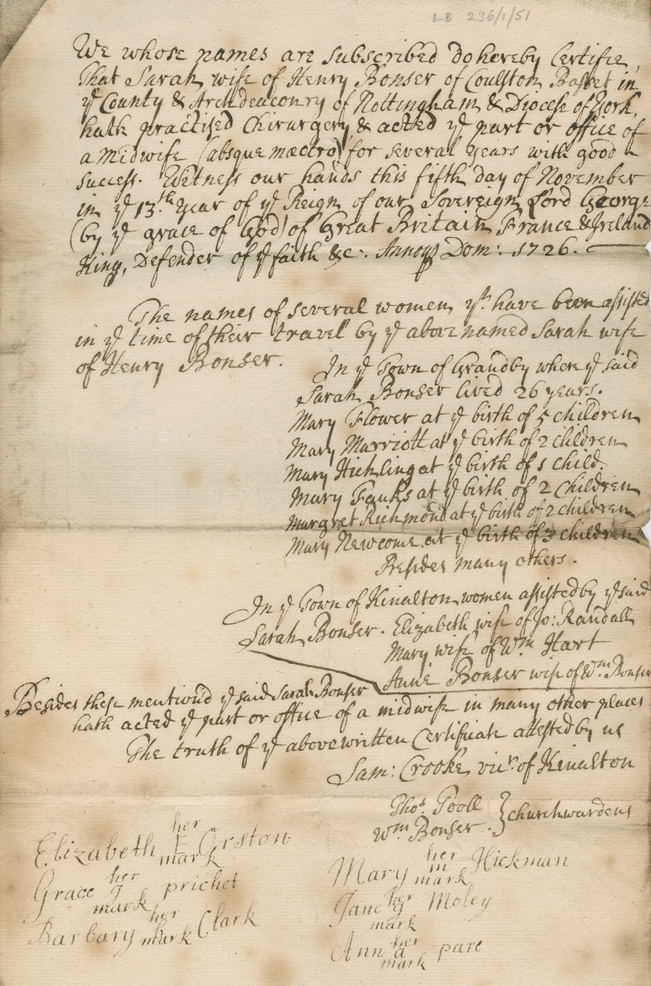 LB 236/1/51
We whose names are subscribed do hereby Certifie
That Sarah wife of Henry Bonser of Coulston Basset in
yᵉ County & Archdeaconry of Nottingham & Diocess of York,
hath practised Chirurgery & acted yᵉ part or office of
a Midwife (absque mæctro) for several years with good
success. Witness our hands this fifth day of November
in yᵉ 13.ᵗʰ year of yᵉ Reign of our Sovereign Lord George
(by yᵉ grace of God) of Great Britain France & Ireland
King, Defender of yᵉ faith &c: Annoq Dom: 1726.
The names of several women yᵗ have been assisted
in yᵉ time of their travel by yᵉ above named Sarah wife
of Henry Bonser.
In yᵉ Town of Grandby where yᵉ said
Sarah Bonser lived 26 years.
Mary Flower at yᵉ birth of 5 children
Mary Marriott at yᵉ birth of 2 children
Mary Hickling at yᵉ birth of 1 child.
Mary Fauks at yᵉ birth of 2 Children
Margret Richmond at yᵉ birth of 2 children
Mary Newcome at yᵉ birth of 3 children
Besides many others.
In yᵉ Town of Kinalton women assisted by yᵉ said
Sarah Bonser. Elizabeth wife of Jo: Randall
Mary wife of Wᵐ Hart
Anne Bonser wife of Wᵐ Bonser
Besides these mention'd yᵉ said Sarah Bonser
hath acted yᵉ part or office of a midwife in many other places
The truth of yᵉ abovewritten Certificate attested by us
Sam: Crooke vicʳ of Kinalton
Thoˢ Pooll
Wᵐ Bonser } churchwardens
Elizabeth her E mark Orston
Grace her mark prichet
Barbary her mark Clark
Mary her m mark Hickman
Jane her mark Moley
Ann her a mark pare